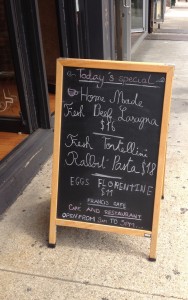 Today's special
Home Made
Fresh Beef Lasagna
$16
Fresh Tortellini
Rabbit Pasta $18
EGGS FLORENTINE
$11
FRANCIS CAFE
CAFE AND RESTAURANT
OPEN FROM 8am TO 5PM